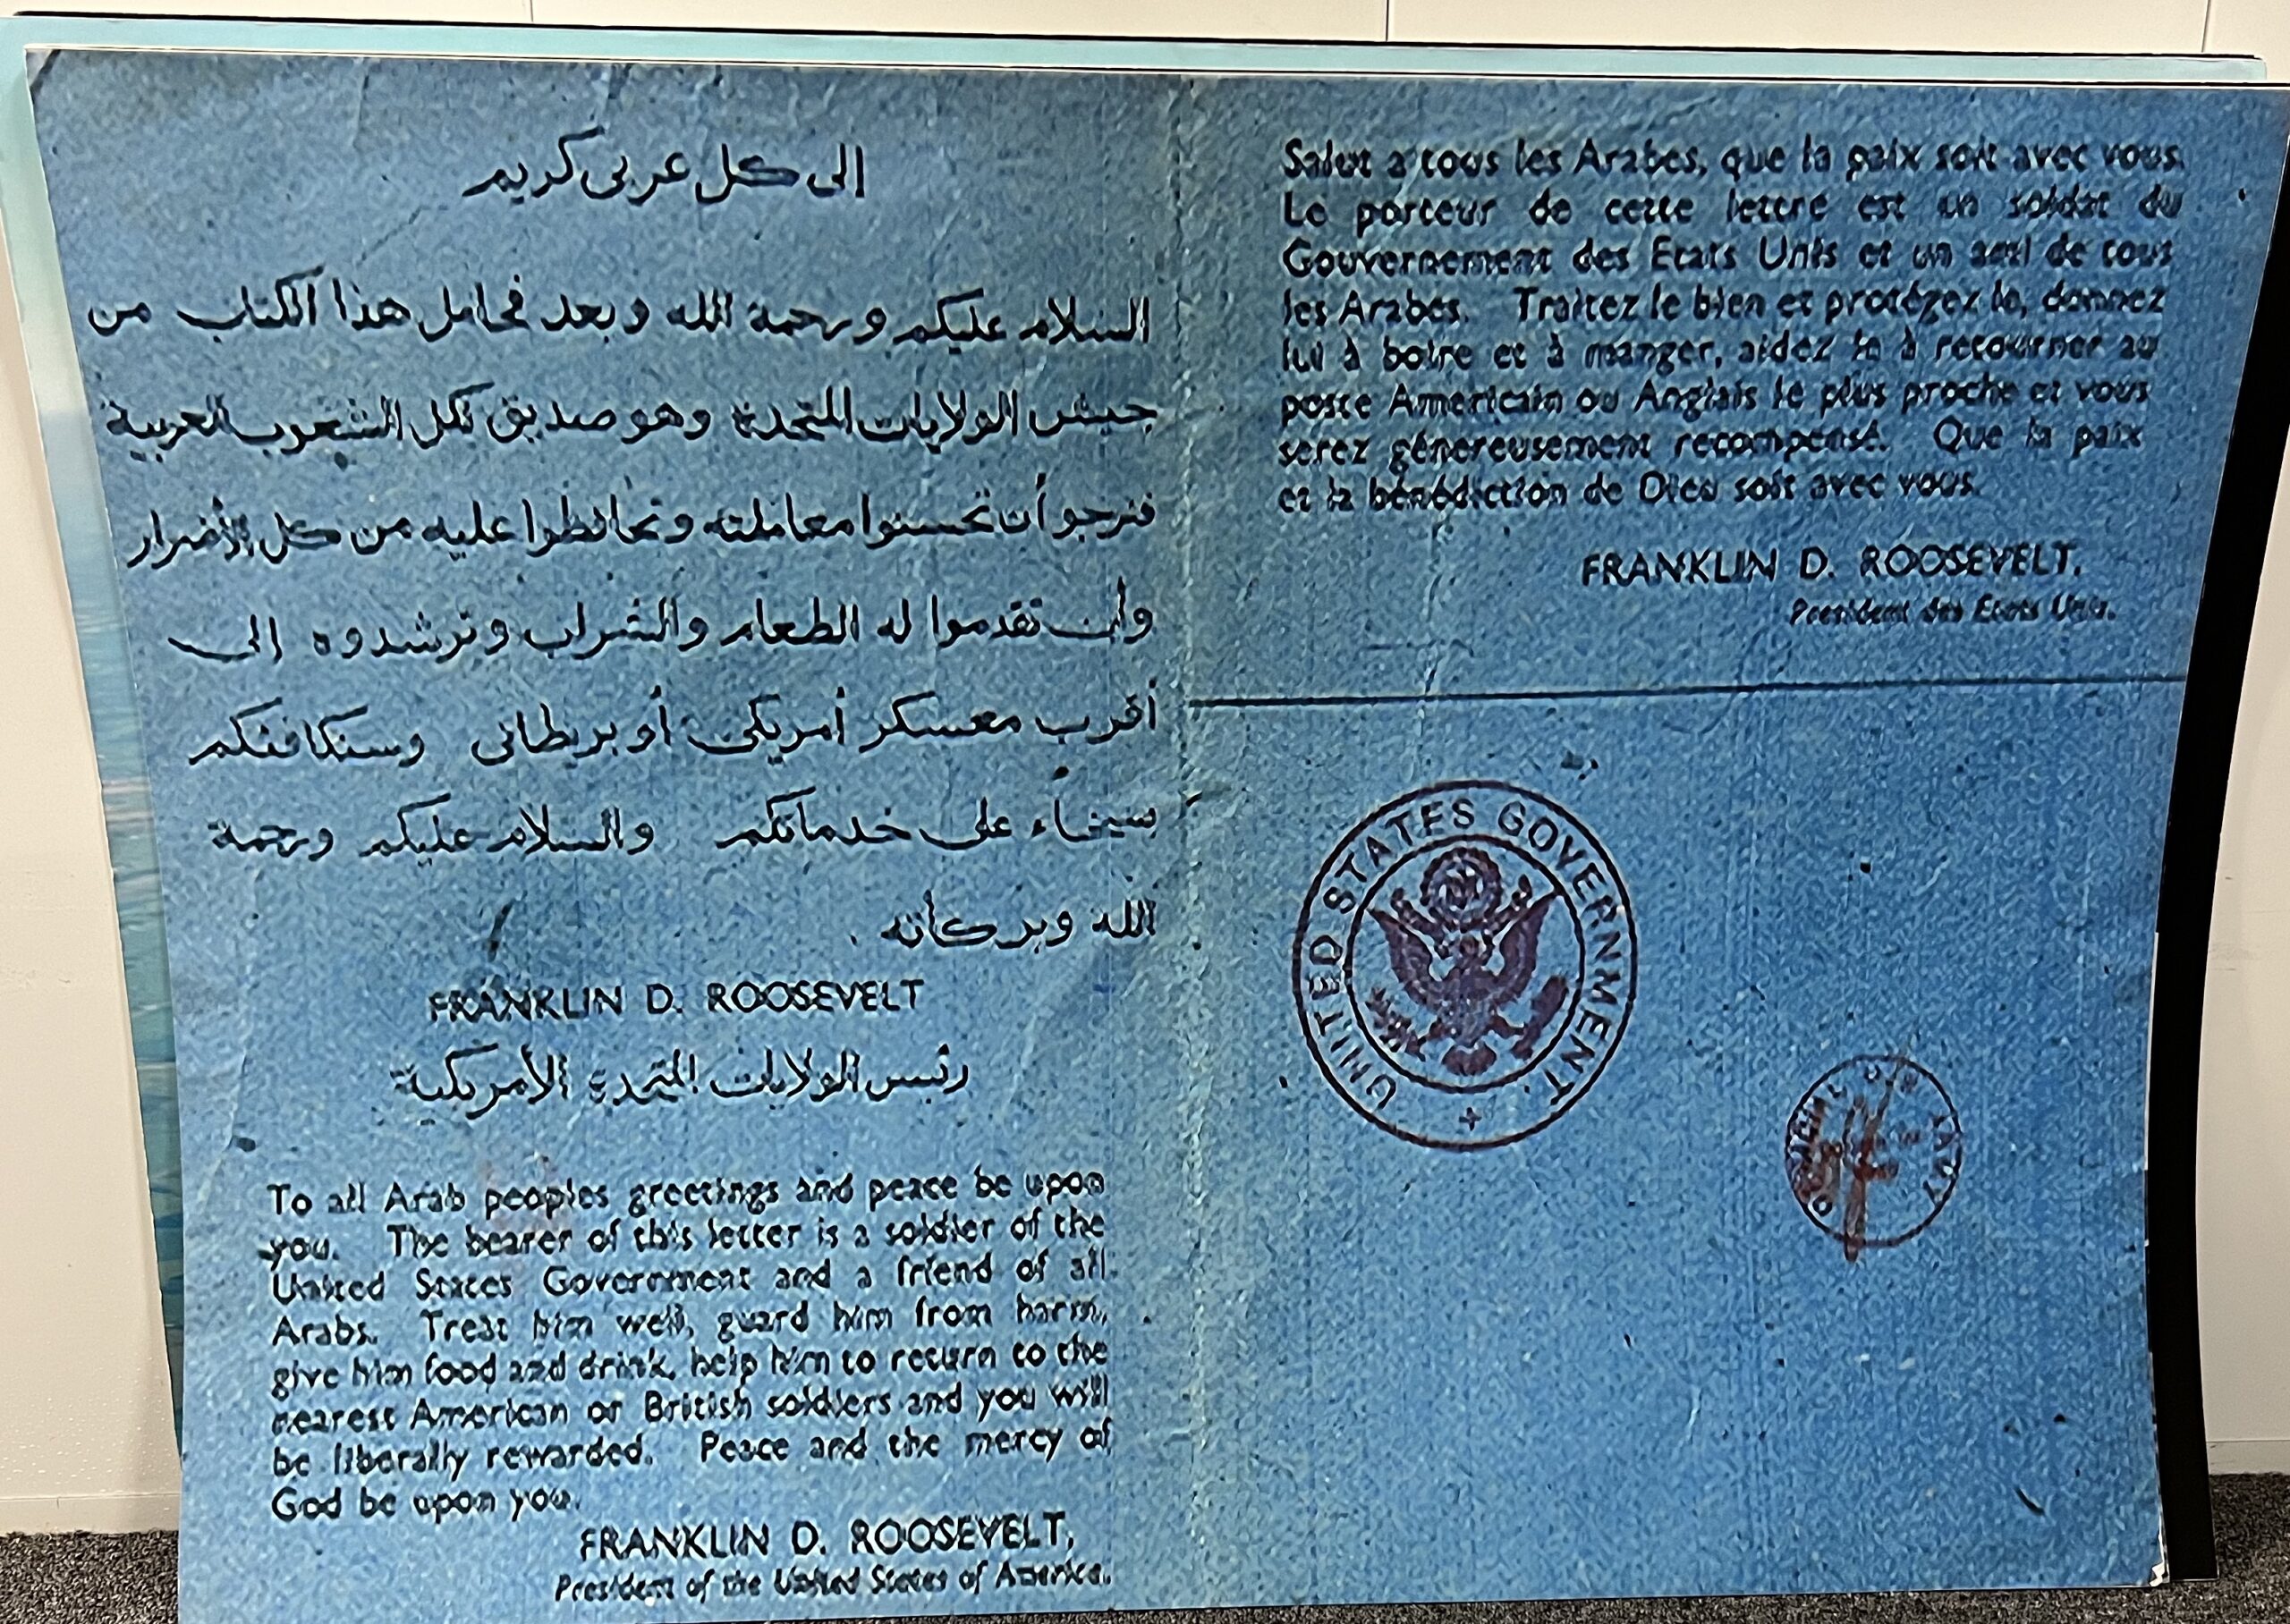 الى كل عربى كريم
السلام عليكم ورحمة الله وبعد فحامل هذا الكتاب من
جيش الولايات المتحدة وهو صديق لكل الشعوب العربية
فنرجو أن تحسنوا معاملته وتحافظوا عليه من كل الأضرار
وأن تقدموا له الطعام والشراب وترشدوه الى
أقرب معسكر أمريكى أو بريطانى وسنكافئكم
بسخاء على خدماتكم والسلام عليكم ورحمة
الله وبركاته .
FRANKLIN D. ROOSEVELT
رئيس الولايات المتحدة الأمريكية
To all Arab peoples greetings and peace be upon
you. The bearer of this letter is a soldier of the
United States Government and a friend of all
Arabs. Treat him well, guard him from harm,
give him food and drink, help him to return to the
nearest American or British soldiers and you will
be liberally rewarded. Peace and the mercy of
God be upon you.
FRANKLIN D. ROOSEVELT,
President of the United States of America.
Salut a tous les Arabes, que la paix soit avec vous.
Le porteur de cette lettre est un soldat du
Gouvernement des Etats Unis et un ami de tous
les Arabes. Traitez le bien et protégez le, donnez
lui à boire et à manger, aidez le à retourner au
poste Americain ou Anglais le plus proche et vous
serez génereusement recompensé. Que la paix
et la bénédiction de Dieu soit avec vous.
FRANKLIN D. ROOSEVELT,
President des Etats Unis.
UNITED STATES GOVERNMENT